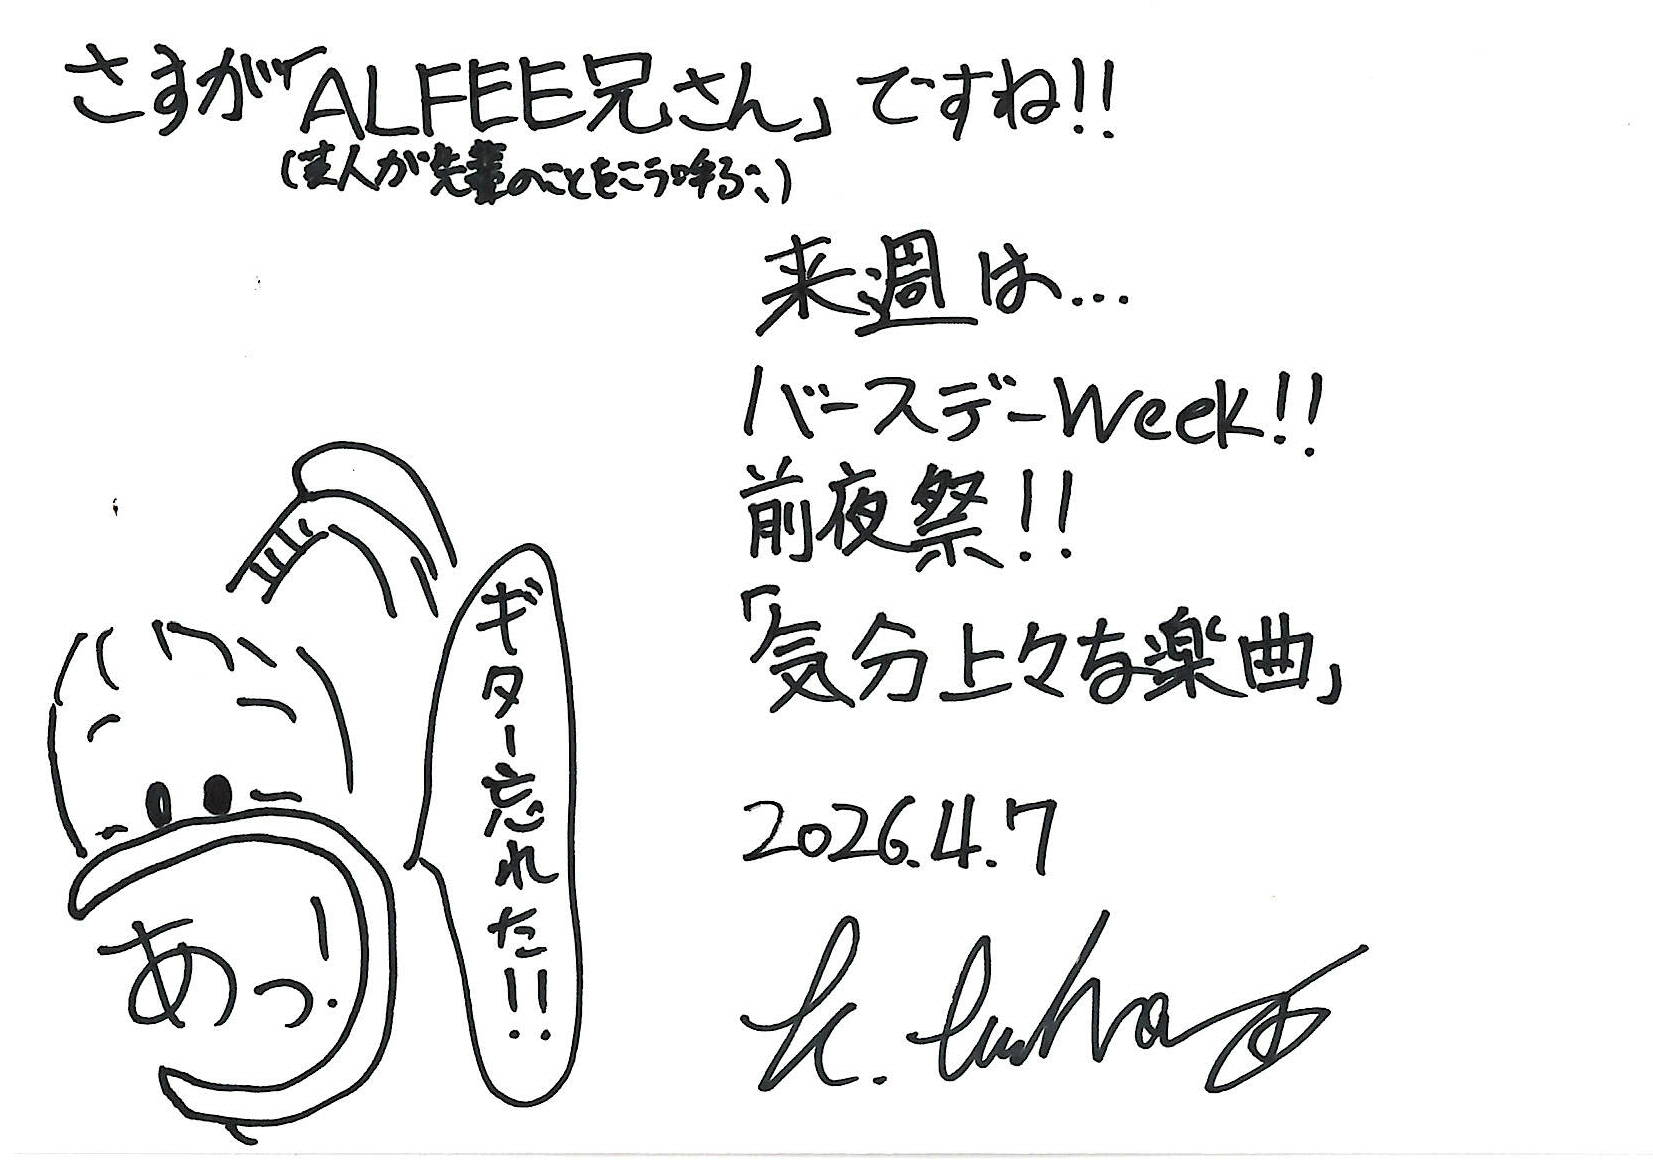 さすが「ALFEE兄さん」ですね!!
(芸人が先輩のことをこう呼ぶ、)
来週は…
バースデーWeek!!
前夜祭!!
「気分上々な楽曲」
2026.4.7
ギター忘れた!!
あっ!